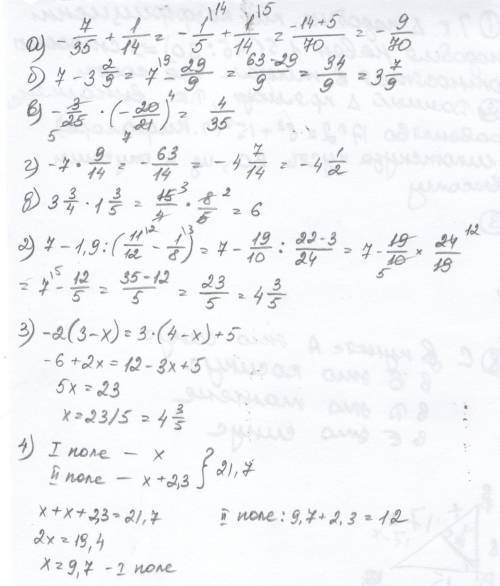 а) 7/35 + 1/14 = - 1/5 \14 + 1/14 \5 = (-14+5)/70 = - 9/70
б) 7 - 3 2/9 = 7 \9 29/9 = (63-29)/9 = 34/9 = 3 7/9
в) - 3/25 · (- 20/21) = 4/35
5 7 4
г) -7 · 9/14 = - 63/14 = -4 7/14 = -4 1/2
д) 3 3/4 · 1 3/5 = 15/4 · 8/5 = 6
3 2
2) 7 - 1,9 : (11/12 \2 - 1/8 \3) = 7 - 19/10 : (22-3)/24 = 7 - 19/10 × 24/19
5 12
= 7 \5 - 12/5 = (35-12)/5 = 23/5 = 4 3/5
3) -2(3-x) = 3·(4-x)+5
-6+2x = 12-3x+5
5x = 23
x = 23/5 = 4 3/5
4) I поле – x
II поле – x+2,3 } 21,7
x+x+2,3=21,7 II поле: 9,7+2,3=12
2x = 19,4
x = 9,7 – I поле